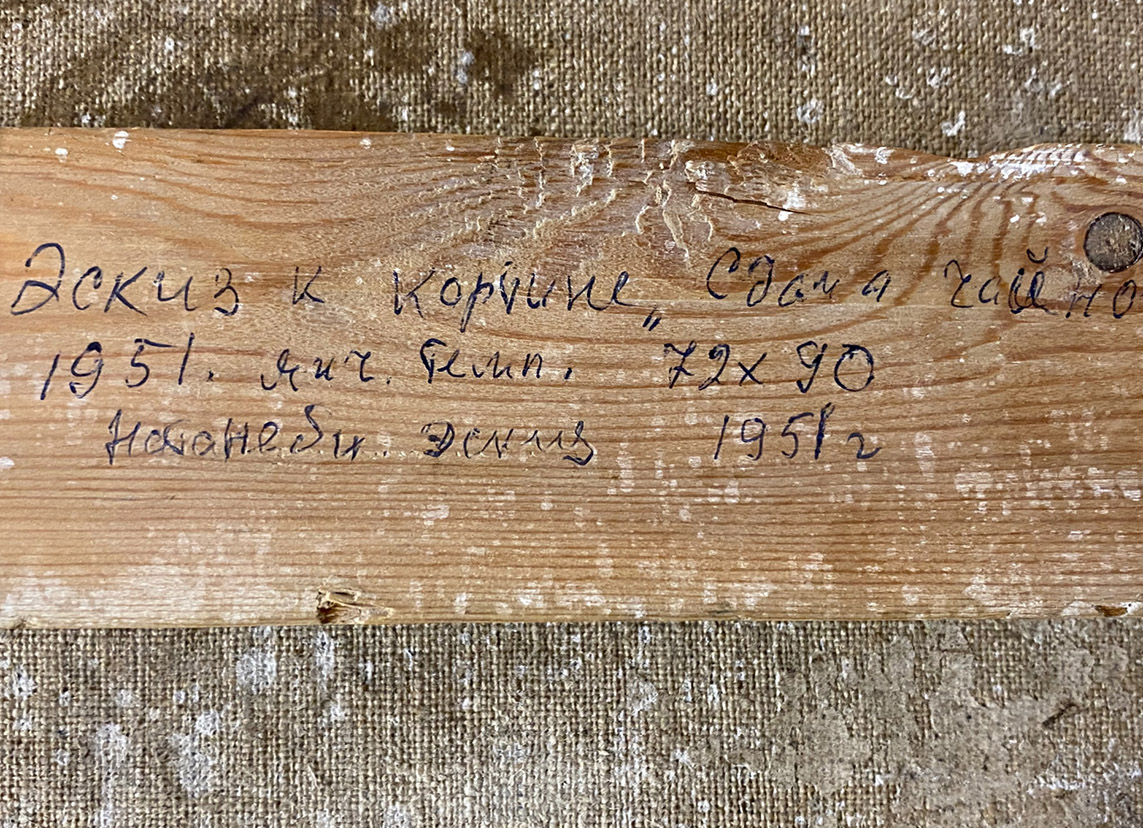 Эскиз к картине „Сдача чайно
1951. яич. темп. 72х90
Натанеби. эскиз 1951г